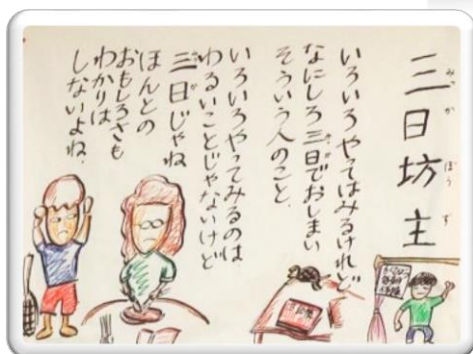 三日坊主
みっかぼうず
いろいろやってはみるけれど
なにしろ三日でおしまい
そういう人のこと。
いろいろやってみるのは
わるいことじゃないけど
三日じゃね
ほんとの
おもしろさも
わかりは
しないよね。